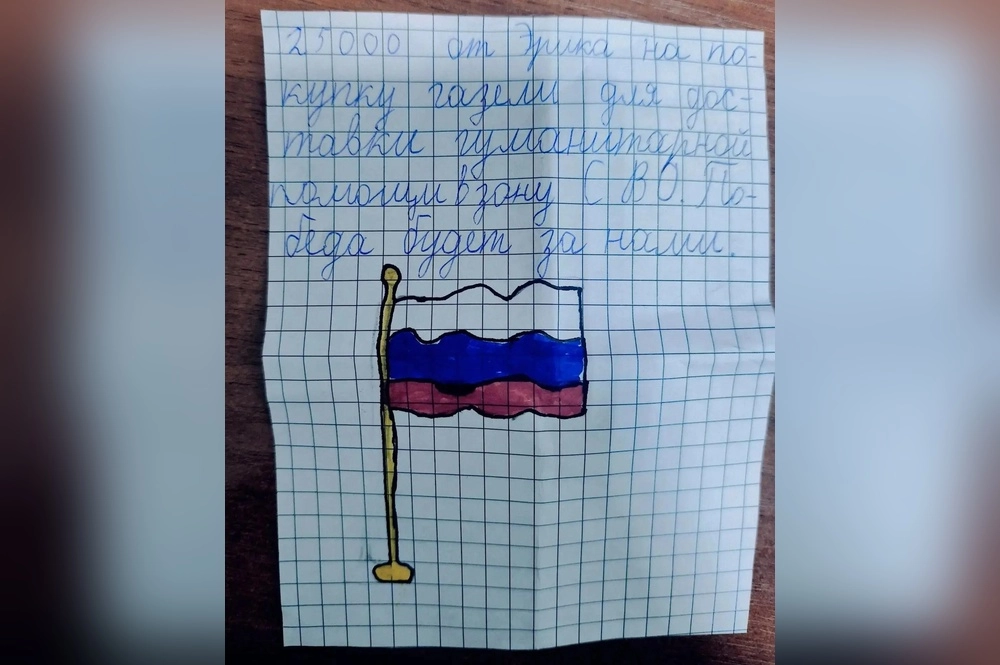 25000 от Эрика на по-
купку газели для дос-
тавки гуманитарной
помощи в зону СВО. По-
беда будет за нами.